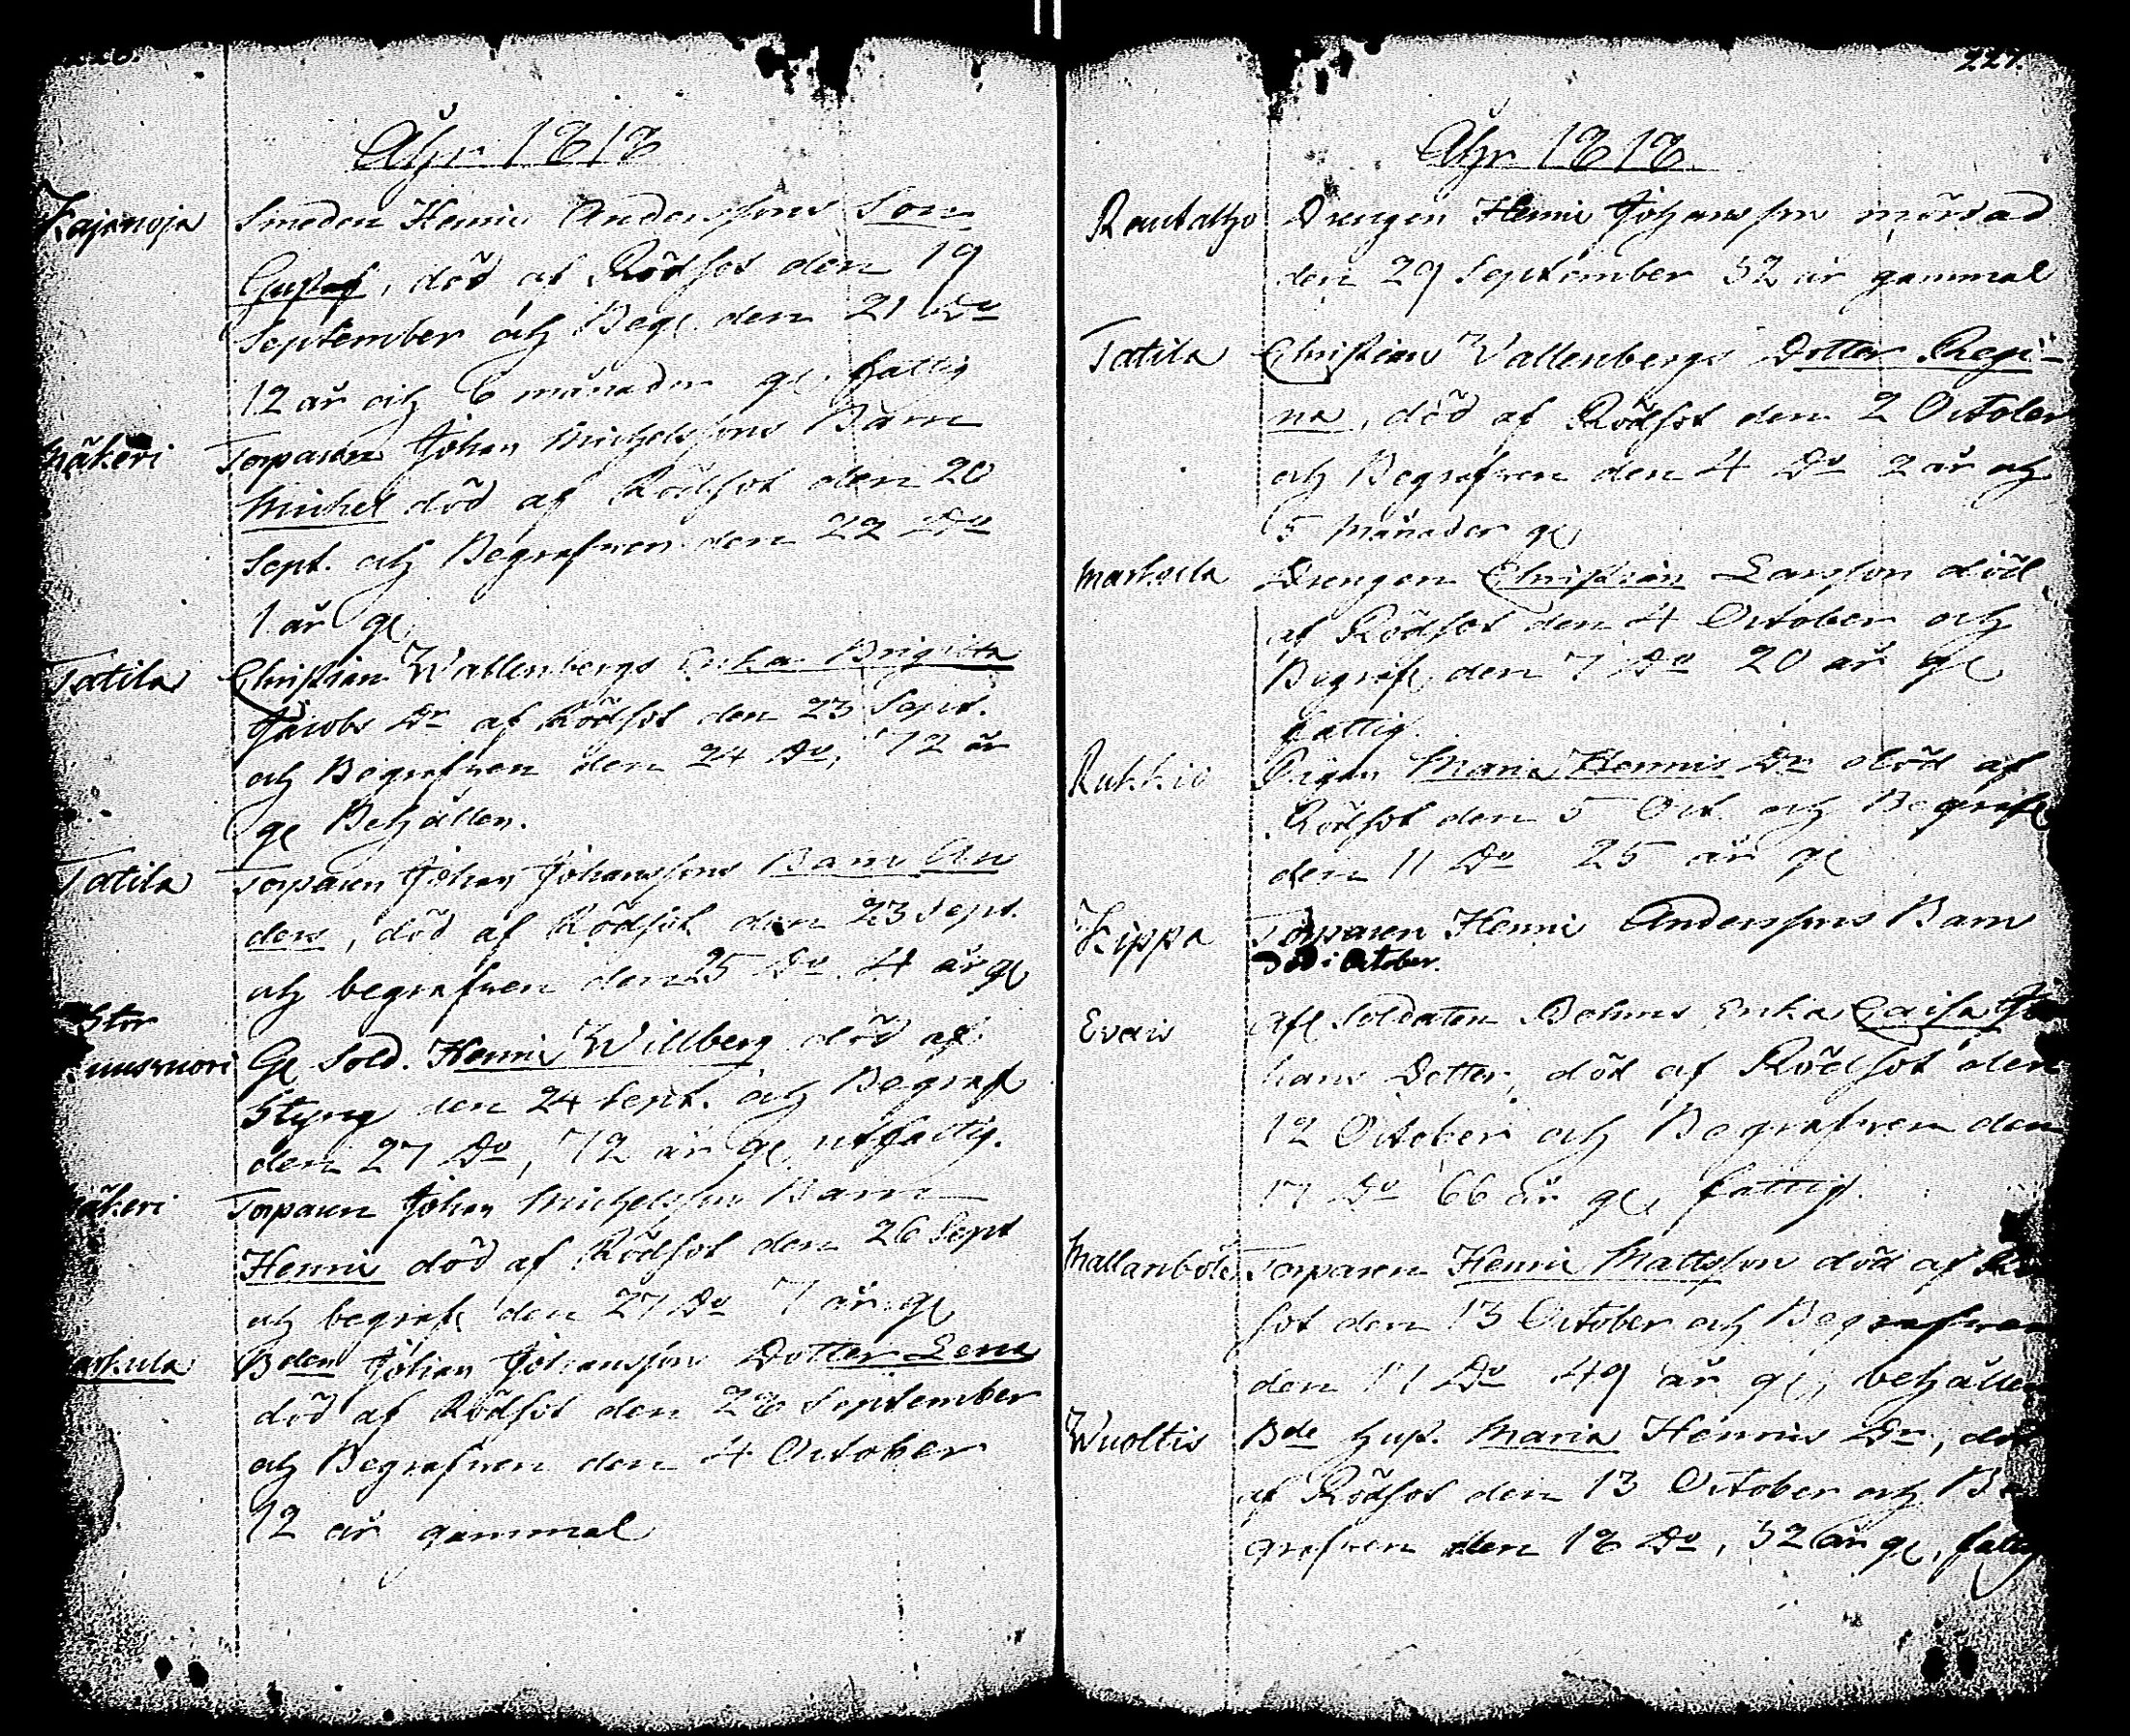 Åhr 1818
Kajanoja Smeden Henric Anderssons Son
Gustaf, död af Rödsot den 19
September och Begr. den 21 Do
12 år och 6 månader gl. fattig
Mäkeri Torparen Johan Michelssons Barn
Michel död af Rödsot den 20
Sept. och Begrafven den 22 Do
1 år gl
Tatila Christian Wallenbergs Enka Brigitta
Jacobs Dr af Rödsot den 23 Sept.
och Begrafven den 24 Do, 72 år
gl Behållen.
Tatila Torparen Johan Johanssons Barn An
ders, död af Rödsot den 23 Sept.
och begrafven den 25 Do 4 år gl
Stor
Gl Sold. Henric Willberg död af
Styng den 24 Sept. och Begraf
den 27 Do, 72 år gl utfattig.
äkeri Torparen Johan Michelsson Barn
Henric död af Rödsot den 26 Sept
och begrafv den 27 Do 7 år gl
Bden Johan Johanssons Dotter Lena
död af Rödsot den 28 September
och Begrafven den 4 October
12 år gammal
227.
Åhr 1818.
Rautalho Drengen Henric Johansson mördad
den 29 September 32 år gammal
Tatila Christian Wallenbergs Dotter Regi-
na, död af Rödsot den 2 October
och Begrafven den 4 Do 2 år och
5 månader gl
Markula Drengen Christian Larsson död
af Rödsot den 4 October och
Begraf den 7 Do 20 år gl
fattig.
Rukkio Pigan Maria Henrics Dr död af
Rödsot den 5 Oct och Begrafv
den 11 Do 25 år gl
Kippa Torparen Henric Anderssons Barn
Död i October.
Evais Afl Soldaten Bohms Enka Caisa Jo
hans Dotter, död af Rödsot den
12 October och Begrafven den
17 Do 66 år gl, fattig.
Mallanböle Torparen Henric Mattsson död af Rö
sot den 13 October och Begrafven
den 17 Do 49 år gl, behållen
Wuoltis Bde hust. Maria Henrics Dr, död
af Rödsot den 13 October och Be
grafven den 18 Do, 32 år gl, fattig